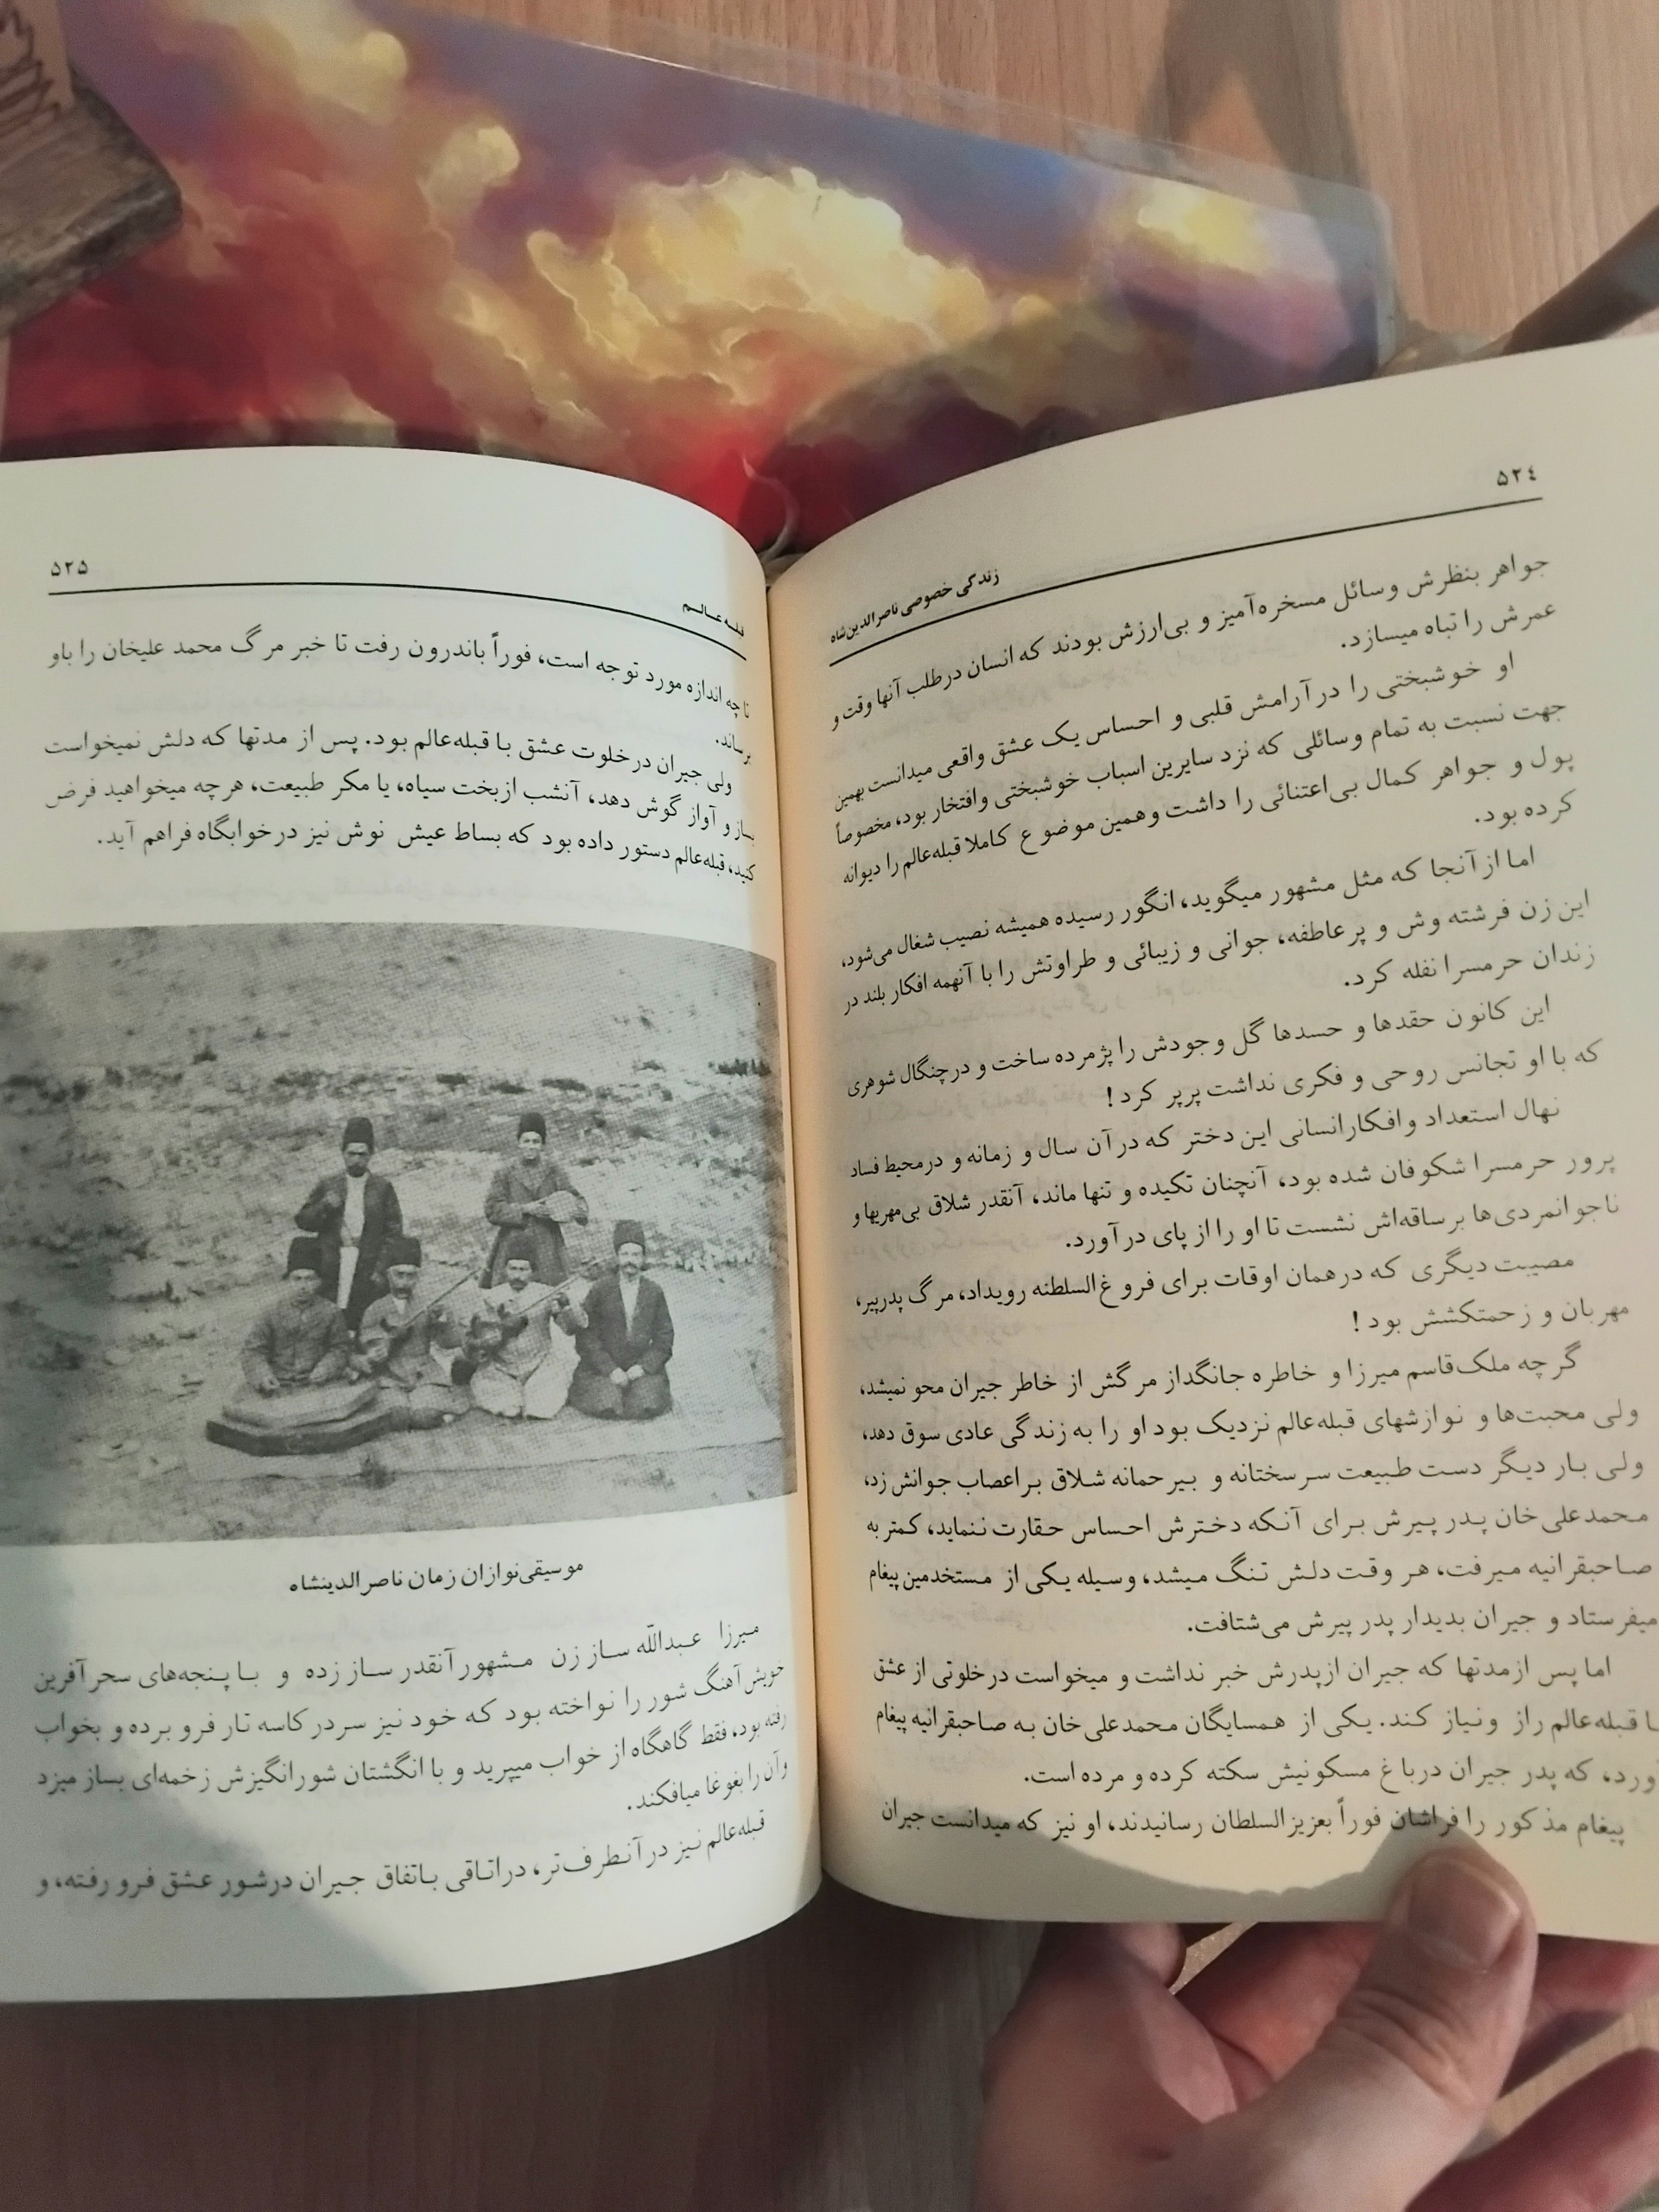 ۵۲٤
زندگی خصوصی ناصرالدین‌شاه
جواهر بنظرش وسائل مسخره‌آمیز و بی‌ارزش بودند که انسان درطلب آنها وقت و
عمرش را تباه میسازد.
او خوشبختی را در آرامش قلبی و احساس یک عشق واقعی میدانست بهمین
جهت نسبت به تمام وسائلی که نزد سایرین اسباب خوشبختی وافتخار بود، مخصوصاً
پول و جواهر کمال بی‌اعتنائی را داشت وهمین موضوع کاملا قبله‌عالم را دیوانه
کرده بود.
اما از آنجا که مثل مشهور میگوید، انگور رسیده همیشه نصیب شغال می‌شود،
این زن فرشته وش و پرعاطفه، جوانی و زیبائی و طراوتش را با آنهمه افکار بلند در
زندان حرمسرا نفله کرد.
این کانون حقدها و حسدها گل وجودش را پژمرده ساخت و درچنگال شوهری
که با او تجانس روحی و فکری نداشت پرپر کرد!
نهال استعداد وافکارانسانی این دختر که در آن سال و زمانه و درمحیط فساد
پرور حرمسرا شکوفان شده بود، آنچنان تکیده و تنها ماند، آنقدر شلاق بی‌مهریها و
ناجوانمردی‌ها برساقه‌اش نشست تا او را از پای درآورد.
مصیبت دیگری که درهمان اوقات برای فروغ‌السلطنه رویداد، مرگ پدرپیر،
مهربان و زحمتکشش بود!
گرچه ملک‌قاسم میرزا و خاطره جانگداز مرگش از خاطر جیران محو نمیشد،
ولی محبت‌ها و نوازشهای قبله‌عالم نزدیک بود او را به زندگی عادی سوق دهد،
ولی بار دیگر دست طبیعت سرسختانه و بیرحمانه شلاق براعصاب جوانش زد،
محمدعلی‌خان پدر پیرش برای آنکه دخترش احساس حقارت ننماید، کمتر به
صاحبقرانیه میرفت، هر وقت دلش تنگ میشد، وسیله یکی از مستخدمین پیغام
میفرستاد و جیران بدیدار پدر پیرش می‌شتافت.
اما پس ازمدتها که جیران ازپدرش خبر نداشت و میخواست درخلوتی از عشق
با قبله‌عالم راز ونیاز کند. یکی از همسایگان محمدعلی‌خان به صاحبقرانیه پیغام
آورد، که پدر جیران درباغ مسکونیش سکته کرده و مرده است.
پیغام مذکور را فراشان فوراً بعزیزالسلطان رسانیدند، او نیز که میدانست جیران
۵۲۵
قبله عالم
تا چه اندازه مورد توجه است، فوراً باندرون رفت تا خبر مرگ محمد علیخان را باو
برساند.
ولی جیران درخلوت عشق با قبله‌عالم بود. پس از مدتها که دلش نمیخواست
بساز و آواز گوش دهد، آنشب ازبخت سیاه، یا مکر طبیعت، هرچه میخواهید فرض
کنید، قبله‌عالم دستور داده بود که بساط عیش نوش نیز درخوابگاه فراهم آید.
موسیقی‌نوازان زمان ناصرالدینشاه
میرزا عبداللّه ساز زن مشهور آنقدر ساز زده و با پنجه‌های سحرآفرین
خویش آهنگ شور را نواخته بود که خود نیز سردر کاسه تار فرو برده و بخواب
رفته بود، فقط گاهگاه از خواب میپرید و با انگشتان شورانگیزش زخمه‌ای بساز میزد
وآن را بغوغا میافکند.
قبله‌عالم نیز در آنطرف‌تر، دراتاقی باتفاق جیران درشور عشق فرو رفته، و